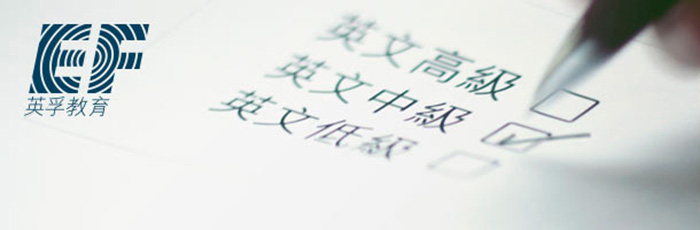 EF
英孚教育
英文高級
英文中級
英文低級